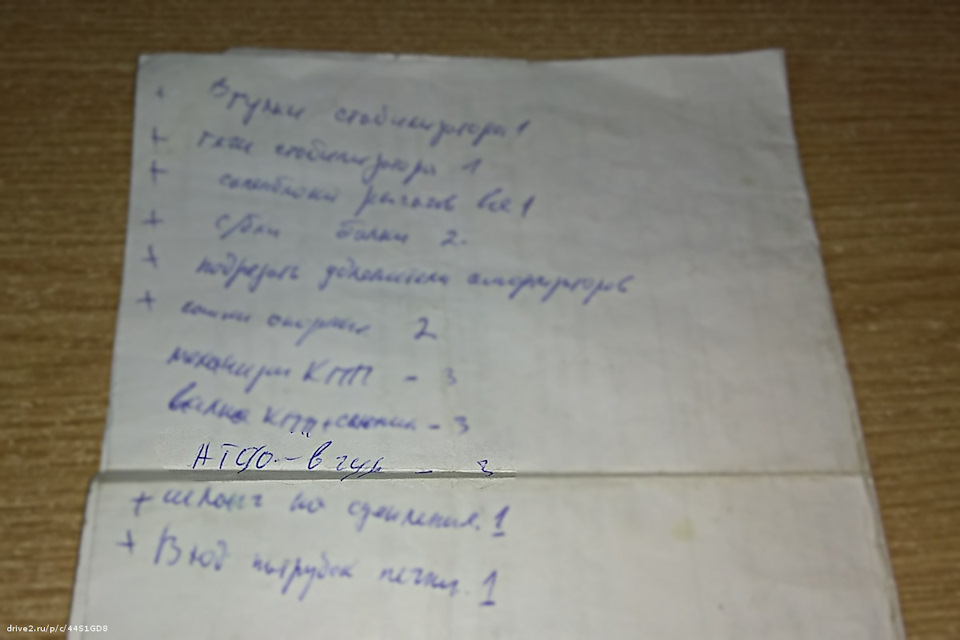 + Втулки стабилизатора 1
+ тяги стабилизатора 1
+ сайлентблоки рычагов все 1
+ с/бл балки 2.
+ подрезать удлинители амортизаторов
+ опорные 2
механизм КПП - 3
КПП + - 3
в гур - 3
+ шланг на сцепления. 1
+ В ход патрубок печки. 1
drive2.ru/p/c/44S1GD8